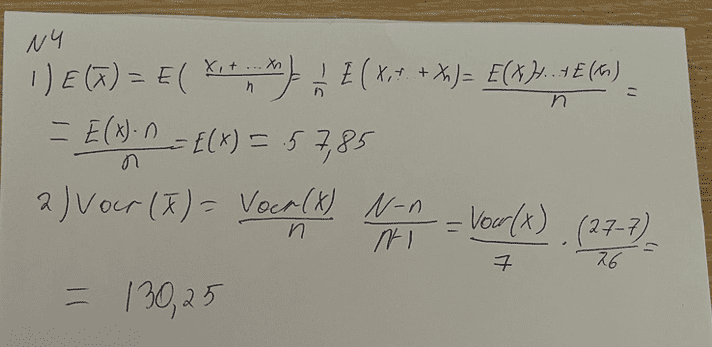 N4
1) E(x̄) = E( (x₁ + ... xₙ)/n ) = 1/n E(x₁+ .. + xₙ) = (E(x)+...+E(xₙ))/n =
= (E(x)·n)/n = E(x) = 57,85
2) Var(x̄) = Var(x)/n (N-n)/(N-1) = Var(x)/7 · (27-7)/26 =
= 130,25